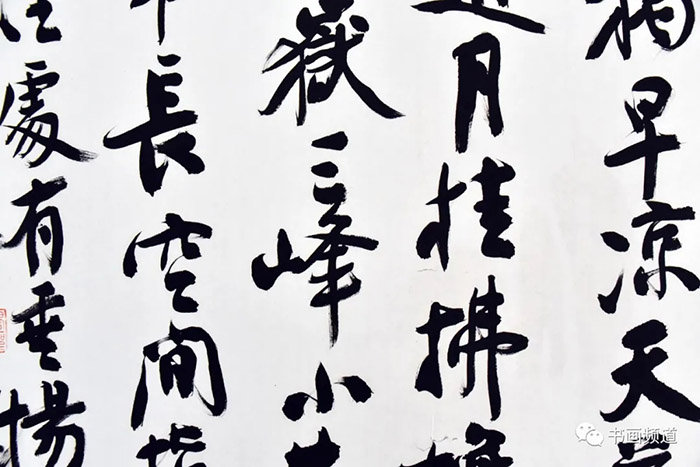 早涼天
月挂拂
嶽三峰小
長空間
處有垂楊
书画频道